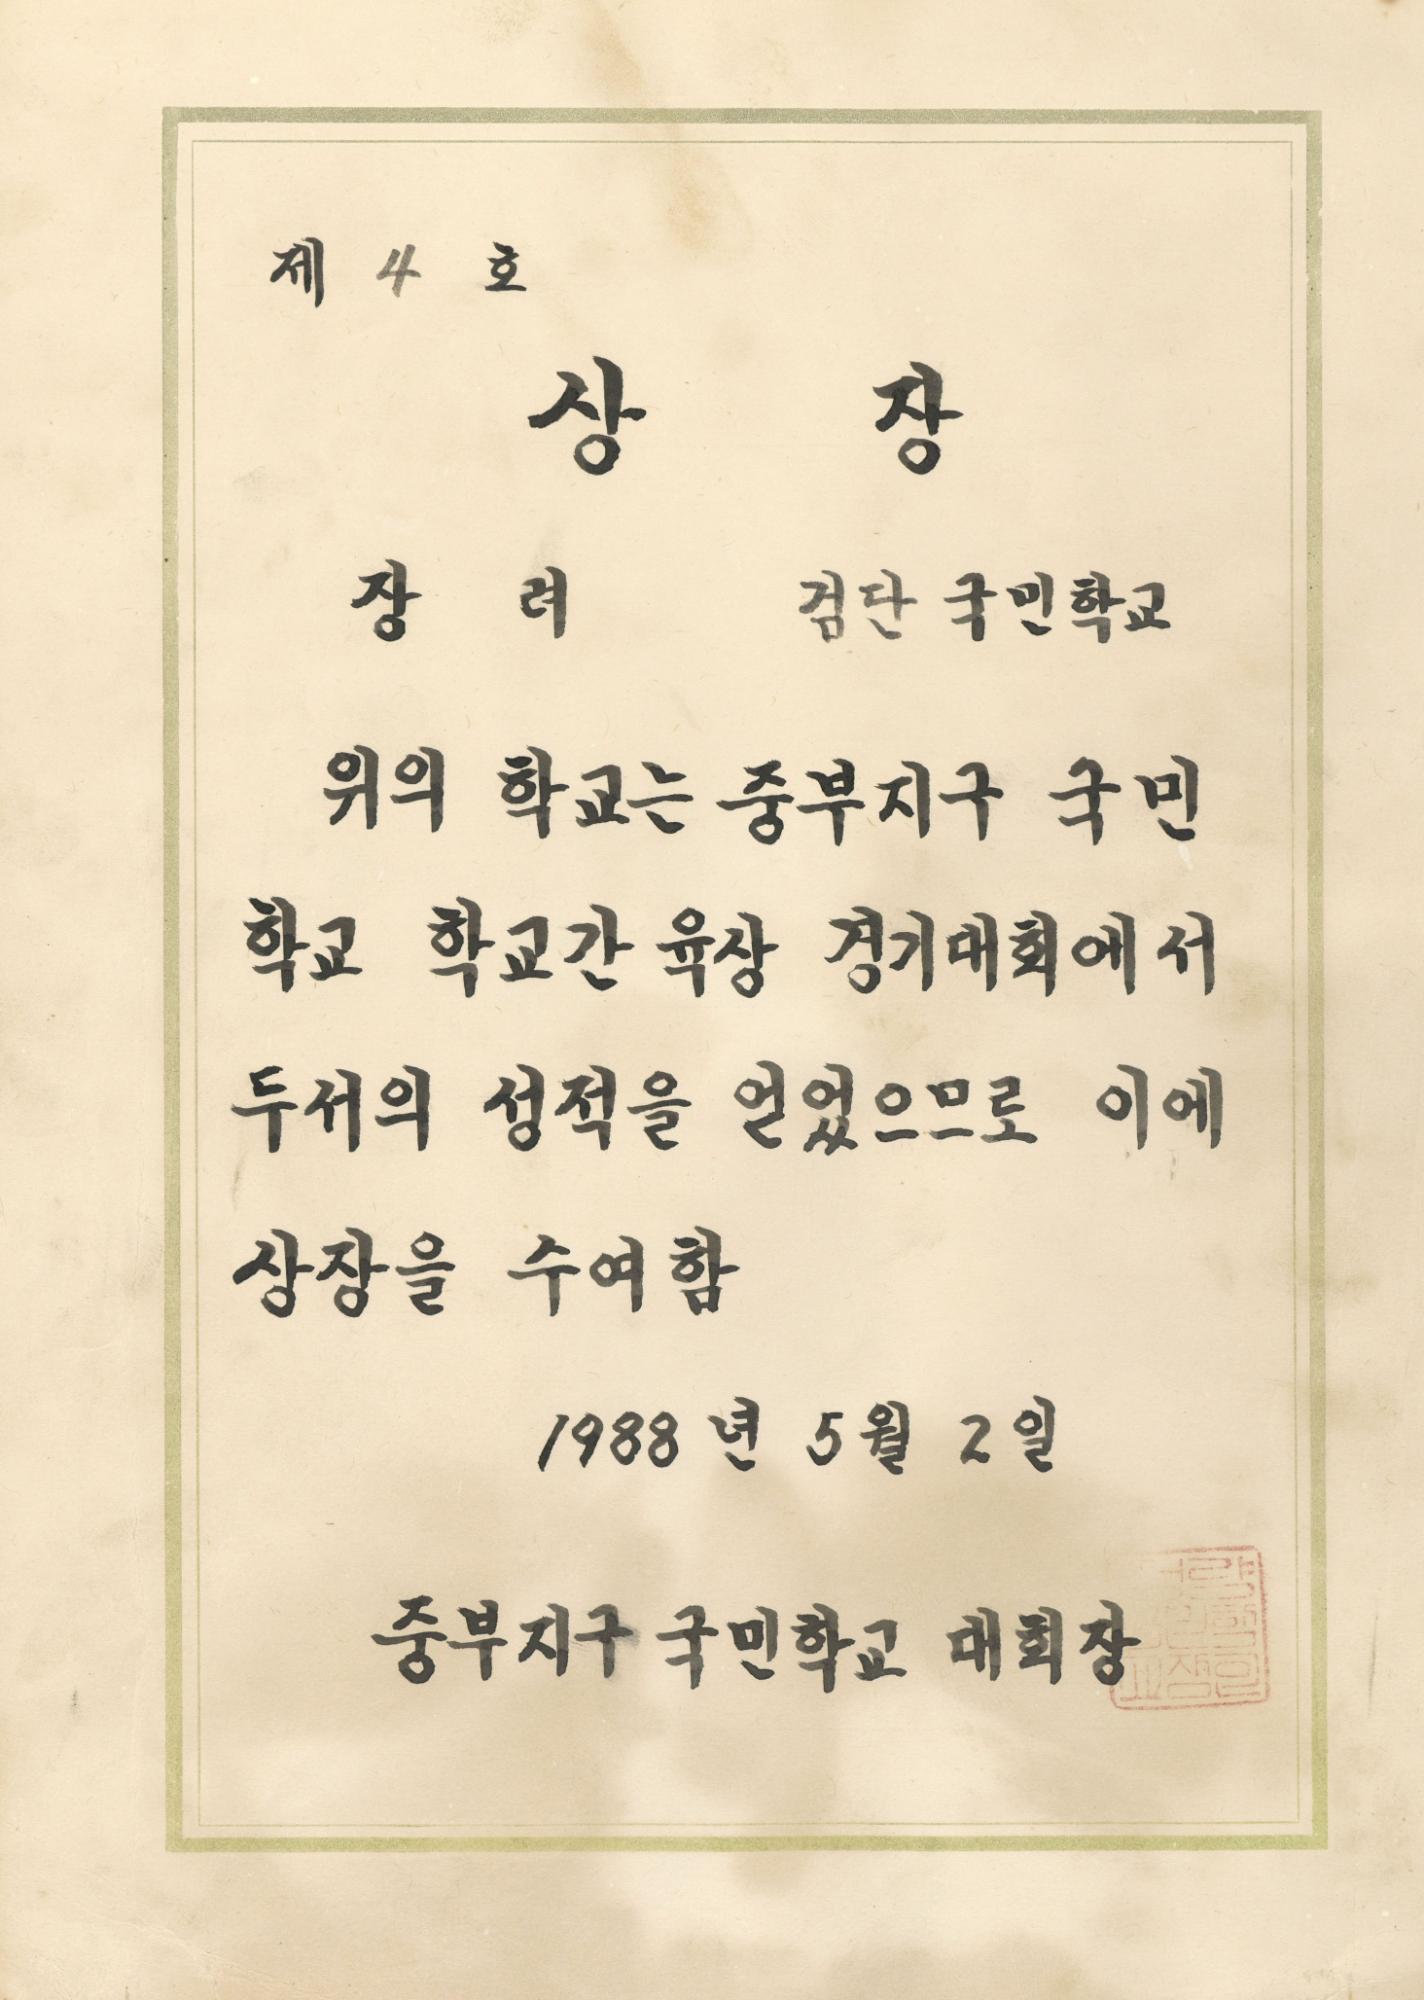 제 4 호
상 장
장 려 검단 국민학교
위의 학교는 중부지구 국민
학교 학교간 육상 경기대회에서
두서의 성적을 얻었으므로 이에
상장을 수여함
1988 년 5월 2일
중부지구 국민학교 대회장